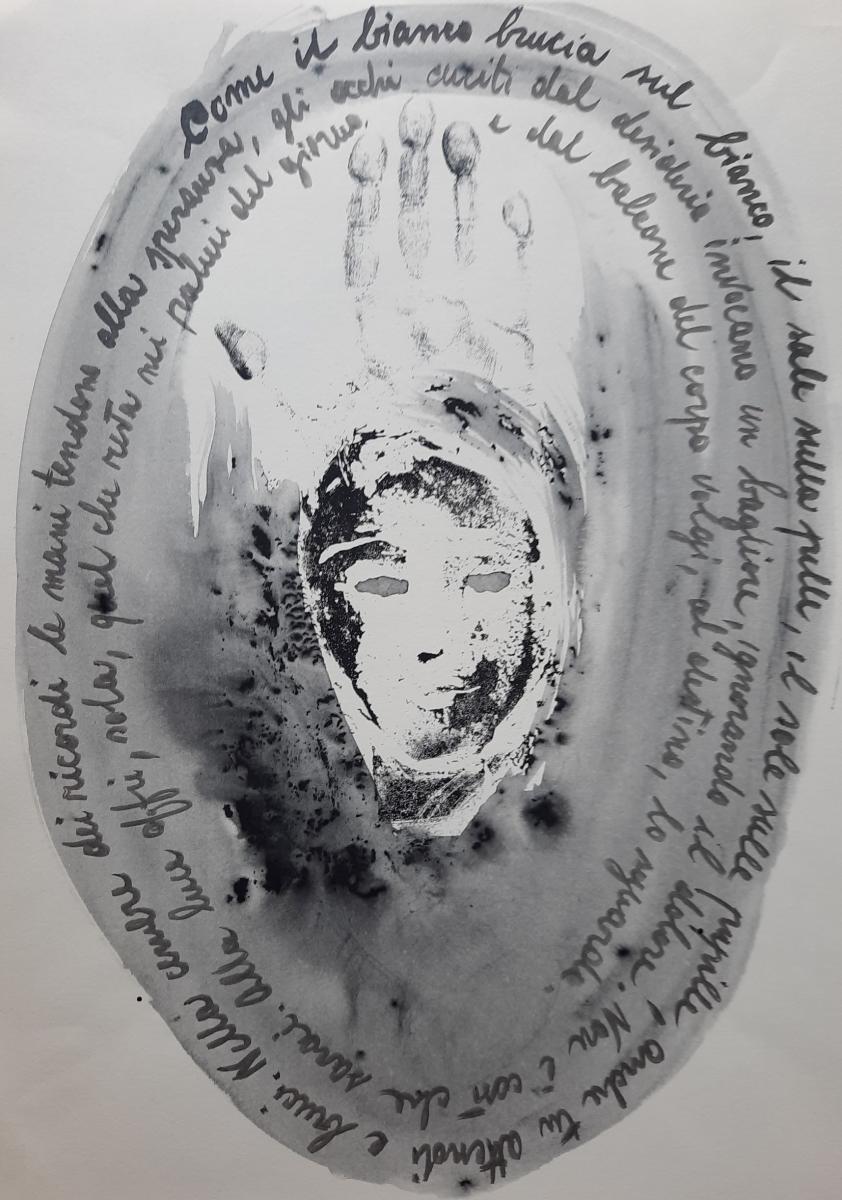 Come il bianco brucia sul bianco, il sale sulla pelle, il sole sulle pupille, anche tu attendi e bruci. Nella cenere dei ricordi le mani tendono alla speranza,
gli occhi cuciti dal desiderio invocano un bagliore, ignorando il dolore. Non è così che sarai. Alla luce offri, sola, quel che resta nei palmi del giorno,
e dal balcone del corpo volgi, al destino, lo sguardo.